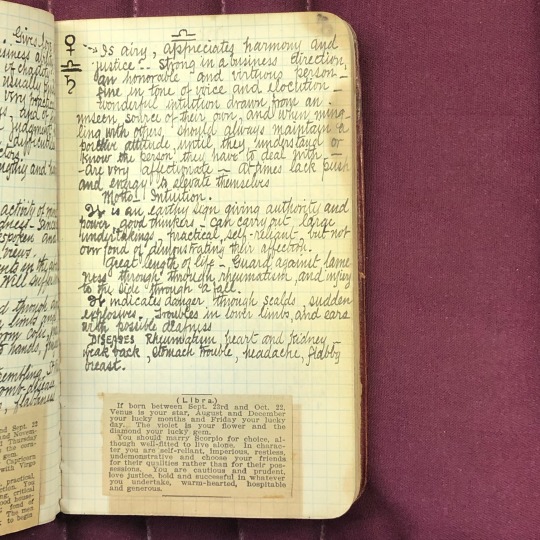 ♎
♀ Is airy, appreciates harmony and
♎ justice - Strong in a business direction,
♄ an honorable and virtuous person -
fine in tone of voice and elocution -
wonderful intuition drawn from an
unseen source of their own, and when ming-
ling with others, should always maintain a
positive attitude, until they understand or
know the person they have to deal with -
are very affectionate - at times lack push
and energy to elevate themselves
Motto - Intuition.
It is an earthy sign giving authority and
power - good thinkers - can carry out large
undertakings, practical, self-reliant - but not
over fond of demonstrating their affection.
Great length of life - Guard against lame
ness through through rheumatism, and injury
to the side through a fall.
It indicates danger through scalds, sudden
explosives. Troubles in lower limbs, and ears
with possible deafness
DISEASES Rheumatism, heart and kidney -
weak back, stomach trouble, headache, flabby
breast.
(Libra.)
If born between Sept. 23rd and Oct. 22,
Venus is your star, August and December
your lucky months and Friday your lucky
day. The violet is your flower and the
diamond your lucky gem.
You should marry Scorpio for choice, al-
though well-fitted to live alone. In charac-
ter you are self-reliant, imperious, restless,
undemonstrative and choose your friends
for their qualities rather than for their pos-
sessions. You are cautious and prudent,
love justice, bold and successful in whatever
you undertake, warm-hearted, hospitable
and generous.